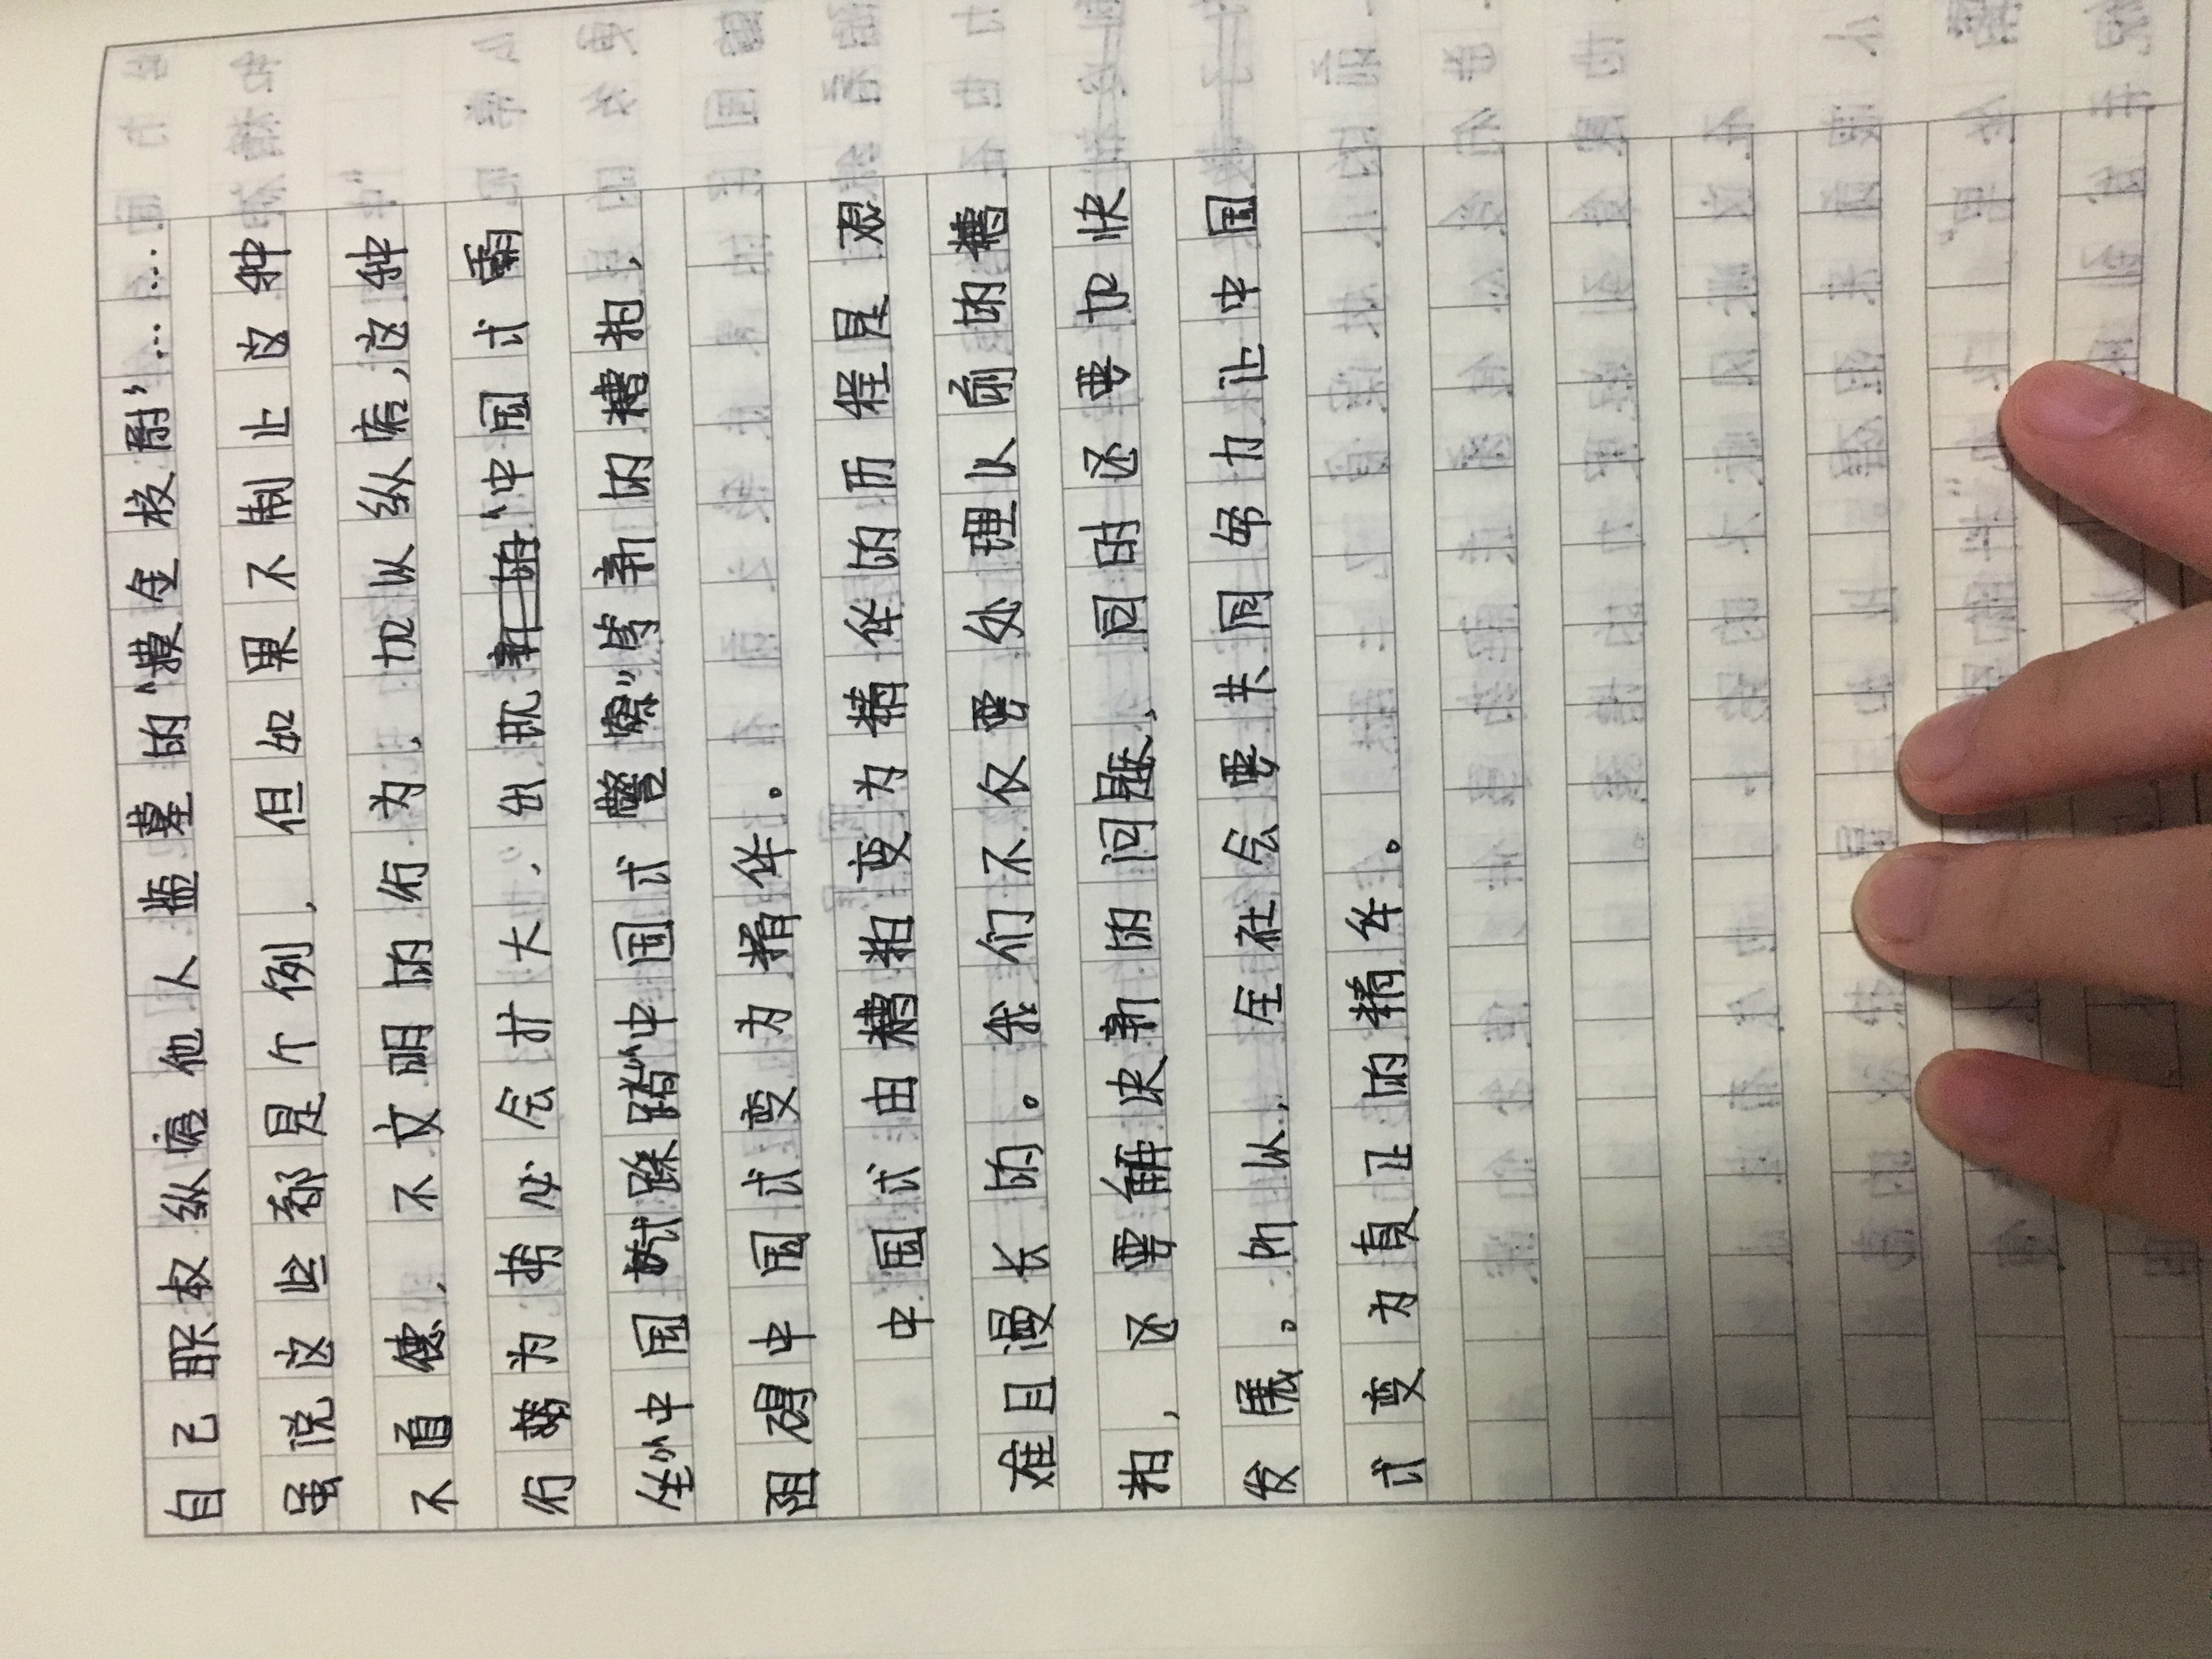 自己职权纵容他人盗墓的“摸金校尉”……
虽说这些都是个例，但如果不制止这种
不道德、不文明的行为，加以纵容，这种
行为势必会扩大，出现“中国式霸
坐”“中国式踩踏”“中国式警察”等新的糟粕，
阻碍中国式变为精华。
中国式由糟粕变为精华的历程是艰
难且漫长的。我们不仅要处理以前的糟
粕，还要解决新的问题，同时还要加快
发展。所以，全社会要共同努力让中国
式变为真正的精华。